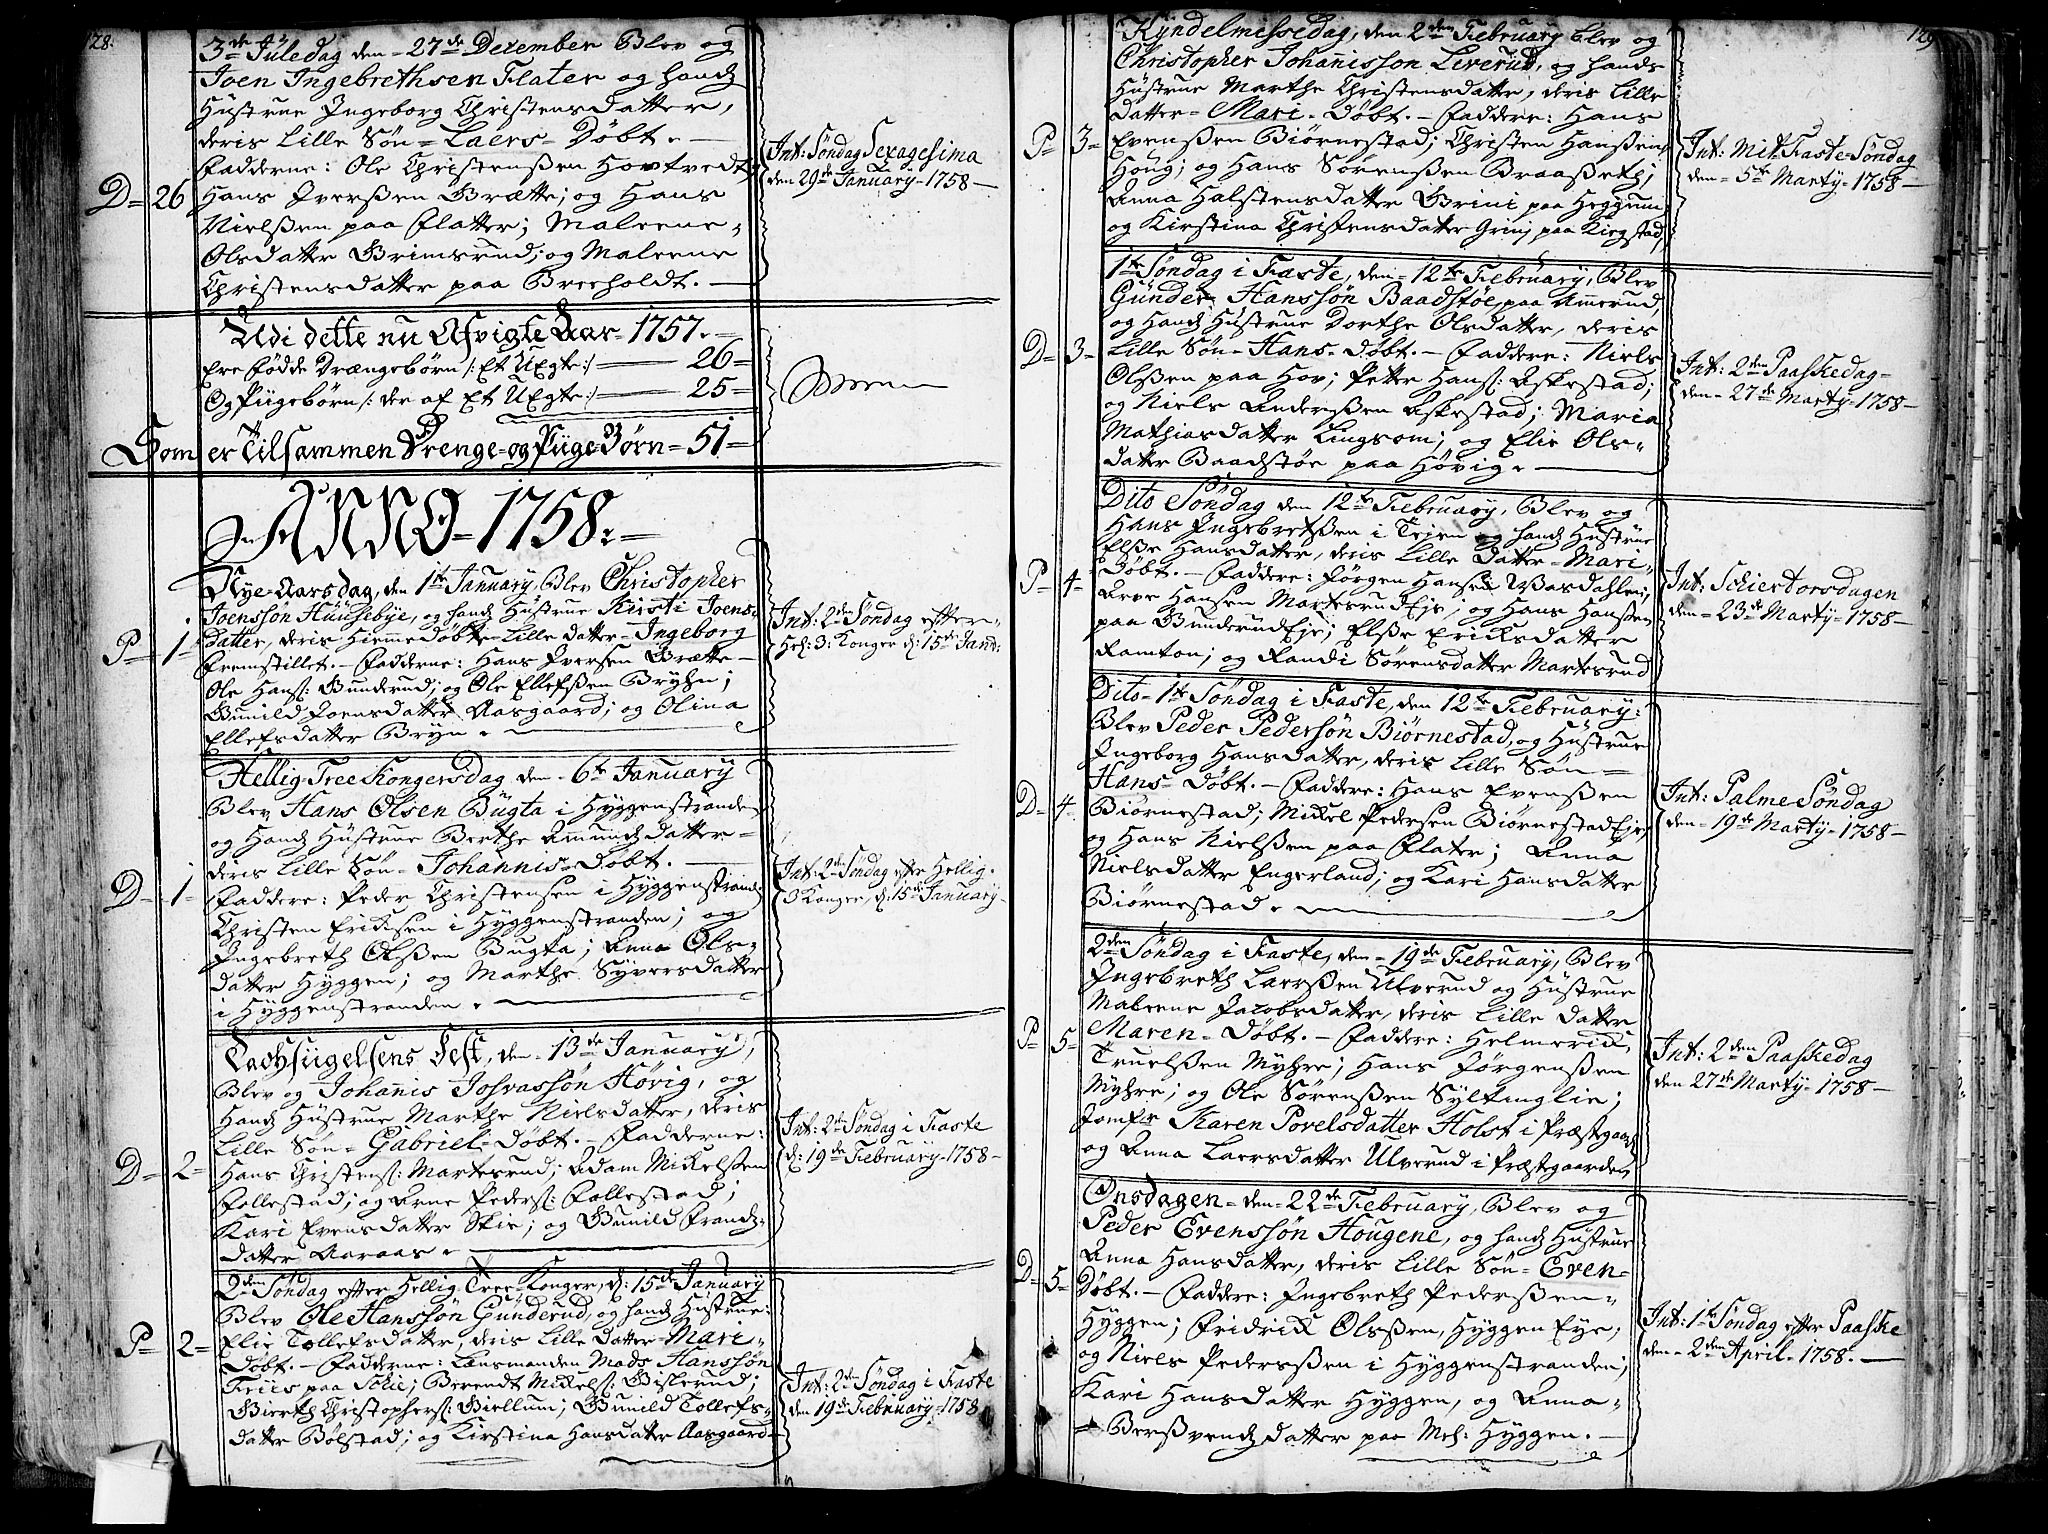 128.
3de Juledag den 27de Dezember Blev og
Joen Ingebrethsen Flater og hands
Hustrue Ingeborg Christensdatter,
deris Lille Søn = Laers = Døbt. —
Fadderne: Ole Christenssen Hovtvedt;
D = 26
Hans Iverssen Brætte; og Hans
Nielssen paa Flatter; Maleene
Olsdatter Grimsrud; og Maleene
Christensdatter paa Breeholdt. —
Int: Søndag Sexagesima
den 29de January = 1758 —
Udi dette nu Afvigte Aar = 1757. —
ere fødde Drængebörn /: Et Uegte :/ — 26 =
Og Piigebörn /: der af Et Uegte :/ — 25 =
Som er Tilsammen Drenge = og Piige = Börn = 51 =
In ANNO = 1758: =
Nye = Aarsdag, den 1te January, Blev Christopher
Joenssøn Huusebye, og hands Hustrue Kirsti Joens=
P = 1 =
datter, deris Hiemmedøbte Lille datter = Ingeborg
fremstillet. — Fadderne: Hans Iversen Brætte —
Ole Hanss: Bunderud; og Ole Ellefssen Bryhn;
Gunild Joensdatter Aasgaard; og Olina
Ellefsdatter Bryn. —
Int: 2den Søndag efter
Hel: 3: Konger d: 15de Janu:
Hellig = Tree Kongersdag den = 6te January
Blev Hans Olsen Bugta i Hyggenstranden
og Hands Hustrue Berthe Amundsdatter =
deris Lille Søn = Johannis = Døbt. —
D = 1 =
Faddere: Peder Christensen i Hyggenstrand:
Christen Eriksen i Hyggenstranden; og
Ingebreth Olssen Bugta; Anna Ols=
datter Hyggen; og Marthe Syversdatter
i Hyggenstranden. —
Int: 2den Søndag efter Hellig.
3 Konger, d: 15de January —
Tachsigelsens Fest, den = 13de January,
Blev og Johanis Josvassøn Høvig, og
Hands Hustrue Marthe Nielsdatter, deris
Lille Søn = Gabriel = Døbt. — Fadderne:
D = 2 =
Hans Christens: Martesrud; Adam Mickelssen
Follestad; og Arne Peders: Follestad;
Kari Evensdatter Skie; og Gunild Frands=
datter Aaraas. —
Int: 2de Søndag i Faste
d: 19de February = 1758 —
2den Søndag efter Hellig Tree Konger, d: 15de January
Blev Ole Hanssøn Gunderud, og hands Hustrue:
P = 2 =
Elie Tollefsdatter, deris Lille datter = Mari =
Døbt. — Fadderne: Lensmanden Mads Hanssøn
Friis paa Schie; Berendt Mickels: Bislerud;
Bierth Christophers: Biellum; Gunild Tollefs=
datter Bølstad; og Kirstina Hansdatter Aasgaard —
Int: 2den Søndag i Faste
den 19de February = 1758
129
Kyndelmessedag, den 2den February blev og
Christopher Johanisson Liverud, og hands
Hustrue Marthe Christensdatter, deris Lille
datter = Mari = Døbt. — Faddere: Hans
P = 3 =
Evenssen Biørnestad; Christen Hanssen
Houg; og Hans Sørenssen Braasseth;
Anna Halstensdatter Grini paa Heggum;
og Kirstina Christensdatter Grini paa Kiegstad
Int: Mit Faste = Søndag
den = 5te Marty = 1758 —
1te Søndag i Faste, den = 12te February, Blev
Gunder Hanssøn Baadstøe, paa Amerud,
og Hands Hustrue Dorthe Olsdatter, deris
D = 3 =
Lille Søn = Hans = Døbt. — Faddere: Niels
Olssen paa Hov; Petter Hans: Askestad;
og Niels Anderssen Askestad; Maria
Mathiasdatter Lingsom; og Elie Ols=
datter Baadstøe paa Høvig. —
Int: 2den Paaskedag =
den = 27de Marty = 1758 —
Dito Søndag den 12te February, Blev og
Hans Ingebretssen i Teien og hands Hustrue
Elsse Hansdatter, deris Lille Datter = Mari,
P = 4 =
Døbt. — Faddere: Jørgen Hansen Wasdahlen;
Arve Hansen MartesrudEje; og Hans Hanssen
paa BunderudEje; Elsse Ericksdatter
Ramton; og Randi Sørensdatter Martesrud
Int: Schiertorsdagen
den = 23de Marty = 1758 —
Dito = 1te Søndag i Faste, den 12te February:
Blev Peder Pedersøn Biørnestad, og Hustrue
Ingeborg Hansdatter, deris Lille Søn =
Hans = Døbt. — Faddere: Hans Evenssen
D = 4
Biørnestad; Mickel Pedersen BiørnestadEje;
og Hans Nielssen paa Flater; Anna
Nielsdatter Engerland; og Kari Hansdatter
Biørnestad. —
Int: Palme Søndag
den = 19de Marty = 1758 —
2den Søndag i Faste, den = 19de February, Blev
Ingebreth Laerssen Ulverud og Hustrue
Maleene Jacobsdatter, deris Lille datter
P = 5 =
Maren = Døbt. — Faddere: Helmerick
Truelssen Myhre; Hans Jørgenssen
Myhre; og Ole Sørenssen Syltinglie;
Jomfr Karen Povelsdatter Holst i Præstegaard:
og Anna Laersdatter Ulverud i Præstgaarden
Int: 2den Paaskedag
den 27de Marty = 1758 —
Onsdagen = den = 22de February, Blev og
Peder Evenssøn Hougene, og hands Hustrue
Anna Hansdatter, deris Lille Søn = Even =
D = 5 =
Døbt. — Faddere: Ingebreth Pederssen =
Hyggen; Fridrick Olssen, Hyggen Eye;
og Niels Pederssen i Hyggenstranden;
Kari Hansdatter Hyggen, og Anna =
= Berssvendsdatter paa Mel: Hyggen. —
Int: 1te Søndag efter Paaske
den = 2den April = 1758. —